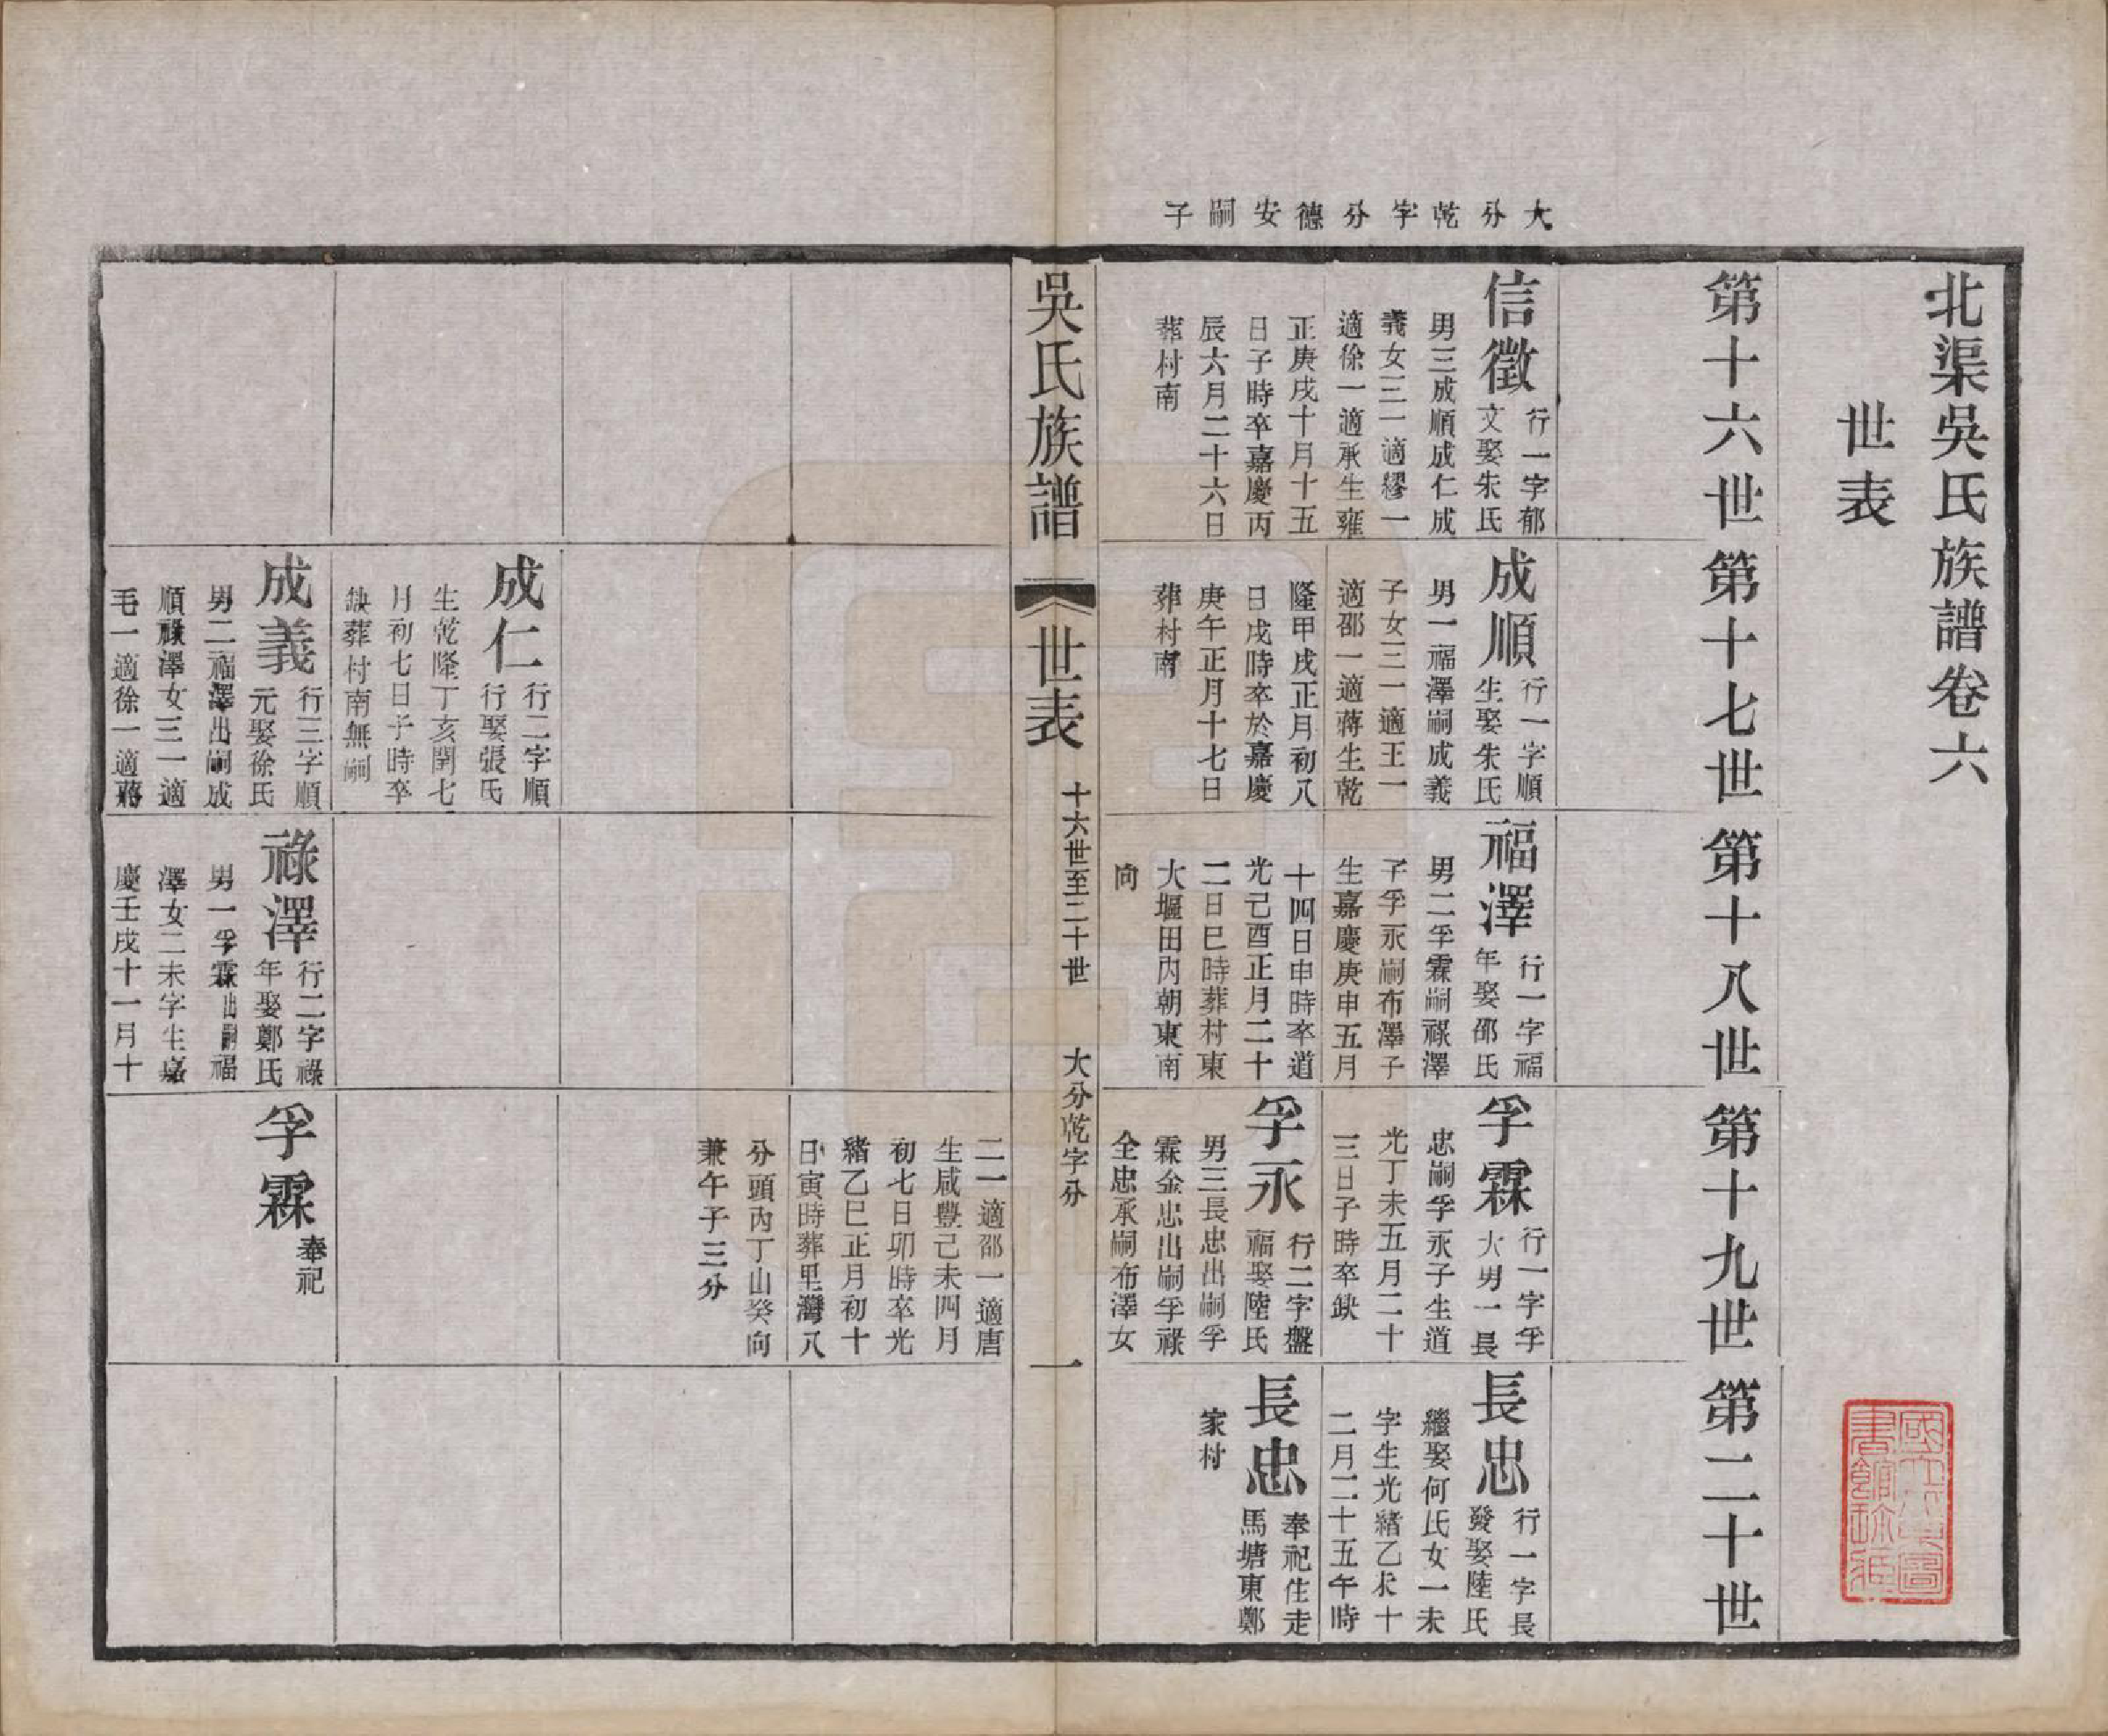 北渠吳氏族譜卷六
世表
第十六世
第十七世
第十八世
第十九世
第二十世
大分乾字分德安嗣子
信徵
行一字郁
文娶朱氏
男三成順成仁成
義女三一適繆一
適徐一適承生雍
正庚戌十月十五
日子時卒嘉慶丙
辰六月二十六日
葬村南
成順
行一字順
生娶朱氏
男一福澤嗣成義
子女三一適王一
適邵一適蔣生乾
隆甲戌正月初八
日戌時卒於嘉慶
庚午正月十七日
葬村南
福澤
行一字福
年娶邵氏
男二孚霖嗣祿澤
子孚永嗣布澤子
生嘉慶庚申五月
十四日申時卒道
光己酉正月二十
二日巳時葬村東
大堰田內朝東南
向
孚霖
行一字孚
大男一長
忠嗣孚永子生道
光丁未五月二十
三日子時卒缺
孚永
行二字盤
福娶陸氏
男三長忠出嗣孚
霖金忠出嗣孚祿
全忠承嗣布澤女
長忠
行一字長
發娶陸氏
繼娶何氏女一未
字生光緒乙未十
二月二十五午時
長忠
奉祀住走
馬塘東鄭
家村
吳氏族譜
世表
十六世至二十世
大分乾字分
一
二一適邵一適唐
生咸豐己未四月
初七日卯時卒光
緒乙巳正月初十
日寅時葬里灣八
分頭丙丁山癸向
兼午子三分
成仁
行二字順
行娶張氏
生乾隆丁亥閏七
月初七日子時卒
缺葬村南無嗣
成義
行三字順
元娶徐氏
男二福澤出嗣成
順祿澤女三一適
毛一適徐一適蔣
祿澤
行二字祿
年娶鄭氏
男一孚霖出嗣福
澤女二未字生嘉
慶壬戌十一月十
孚霖
奉祀